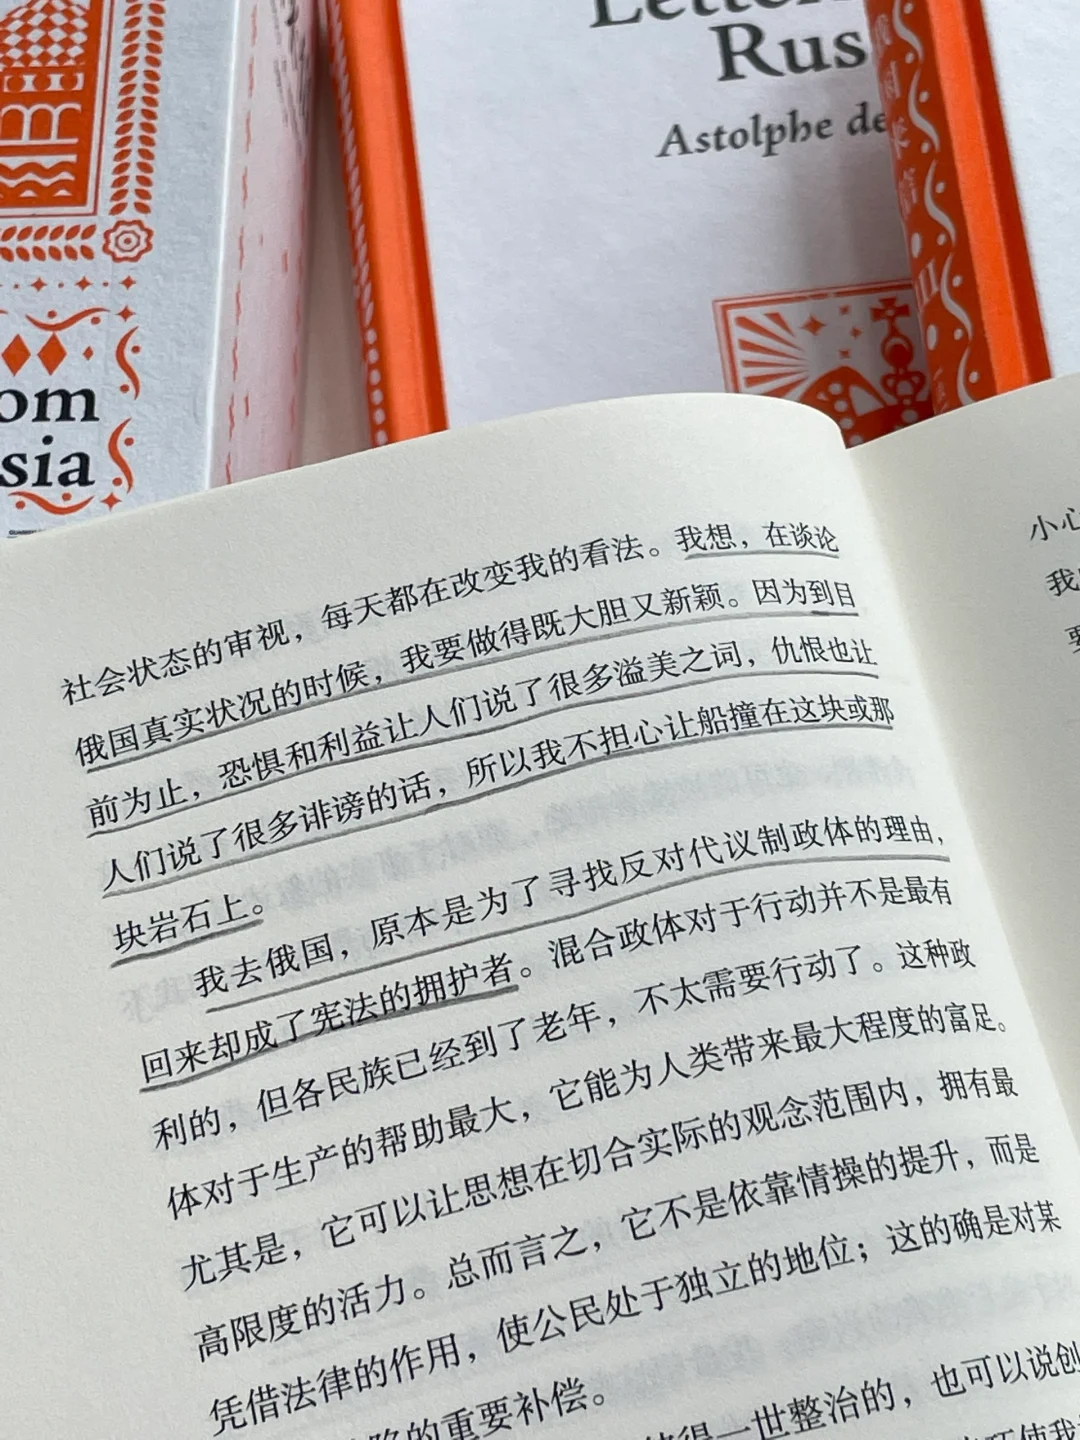 om
sia
Letter
Rus
Astolphe de
俄国来信
II
社会状态的审视，每天都在改变我的看法。我想，在谈论
俄国真实状况的时候，我要做得既大胆又新颖。因为到目
前为止，恐惧和利益让人们说了很多溢美之词，仇恨也让
人们说了很多诽谤的话，所以我不担心让船撞在这块或那
块岩石上。
我去俄国，原本是为了寻找反对代议制政体的理由，
回来却成了宪法的拥护者。混合政体对于行动并不是最有
利的，但各民族已经到了老年，不太需要行动了。这种政
体对于生产的帮助最大，它能为人类带来最大程度的富足。
尤其是，它可以让思想在切合实际的观念范围内，拥有最
高限度的活力。总而言之，它不是依靠情操的提升，而是
凭借法律的作用，使公民处于独立的地位；这的确是对某
的重要补偿。
得一世整治的，也可以说创
使我
小心
我
要